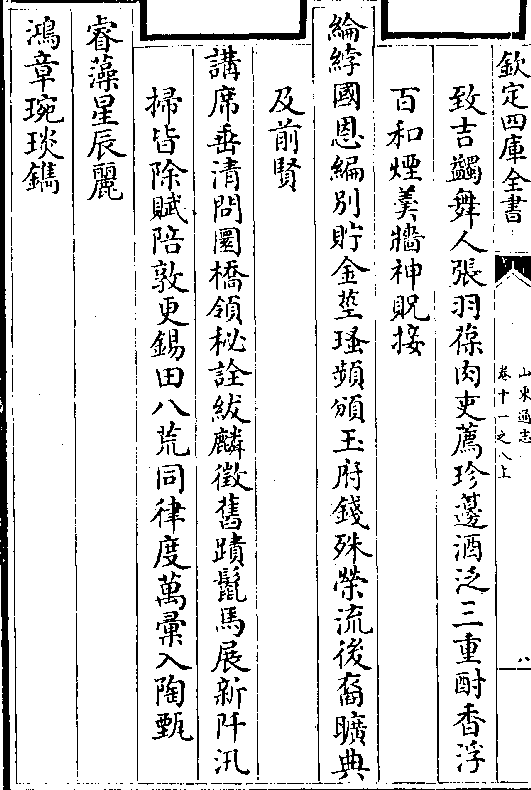 欽定四庫全書
山東通志
卷十一之八上
八
致吉蠲舞人張羽葆肉吏薦珍籩酒泛三重酎香浮
百和煙羹牆神貺接
綸綍國恩編別貯金莖瑤頻頒玉府錢殊榮流後裔曠典
及前賢
講席垂清問圜橋領秘詮紱麟徵舊蹟鬛馬展新阡汛
掃皆除賦陪敦更錫田八荒同律度萬彙入陶甄
睿藻星辰麗
鴻章琬琰鐫